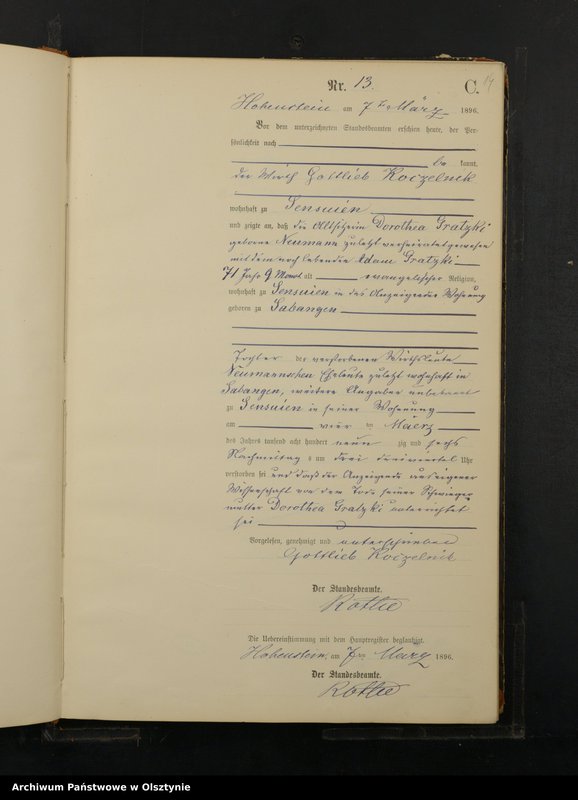 Nr. 13. C. 14
Hohenstein am 7ten März 1896.
Vor dem unterzeichneten Standesbeamten erschien heute, der Per-
sönlichkeit nach
be kannt,
der Wirth Gottlieb Koczelnik
wohnhaft zu Senszuien
und zeigte an, daß die Altsitzerin Dorothea Gratzki
geborene Neumann zuletzt verheirathet gewesen
mit dem noch lebenden Adam Gratzki
71 Jahr 9 Monat alt evangelischer Religion,
wohnhaft zu Senszuien in des Anzeigenden Wohnung
geboren zu Sabangen
Tochter der verstorbenen Wirthsleute
Neumannschen Eheleute zuletzt wohnhaft in
Sabangen, weitere Angaben unbekannt
zu Senszuien in seiner Wohnung
am vier ten Maerz
des Jahres tausend acht hundert neun zig und sechs
Nachmittag s um drei dreiviertel Uhr
verstorben sei und daß der Anzeigende aus eigener
Wissenschaft von dem Tode seiner Schwieger
mutter Dorothea Gratzki unterrichtet
sei
Vorgelesen, genehmigt und unterschrieben
Gottlieb Koczelnik
Der Standesbeamte.
Rothe
Die Uebereinstimmung mit dem Hauptregister beglaubigt.
Hohenstein, am 7ten März 1896.
Der Standesbeamte.
Rothe
Archiwum Państwowe w Olsztynie